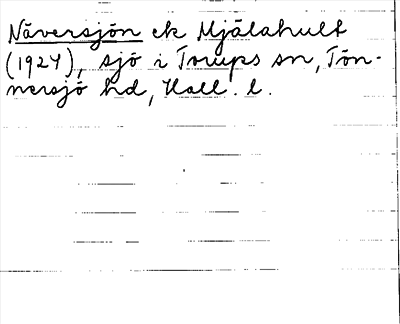 Näversjön ek Mjälahult
(1924), sjö i Torups sn, Tön-
nersjö hd, Hall. l.